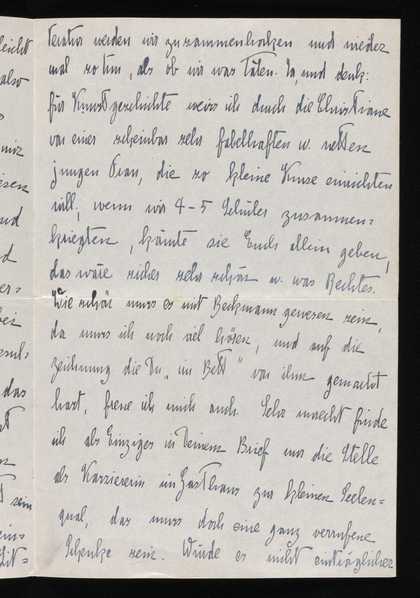 teratur werden wir zusammenhocken und wieder
mal so tun, als ob wir was täten. Ja, und denk:
für Kunstgeschichte weiss ich durch die Christiane
von einer scheinbar sehr fabelhaften u. netten
jungen Frau, die so kleine Kurse einrichten
will; wenn wir 4-5 Schüler zusammen-
kriegten, könnte sie Euch allein geben,
das wäre sicher sehr schön u. was Rechtes.
Wie schön muss es mit Beckmann gewesen sein,
da muss ich noch viel hören, und auf die
Zeichnung die Du "im Bett" von ihm gemacht
hast, freue ich mich auch. Sehr finde
ich als Einziges in Deinem Brief nur die Stelle
als Kassiererin im Gasthaus zur kleinen Seelen-
qual, das muss doch eine ganz verrufene
Schenke sein. Würde es nicht einträglicher
leicht
also
mir
und
das
sein